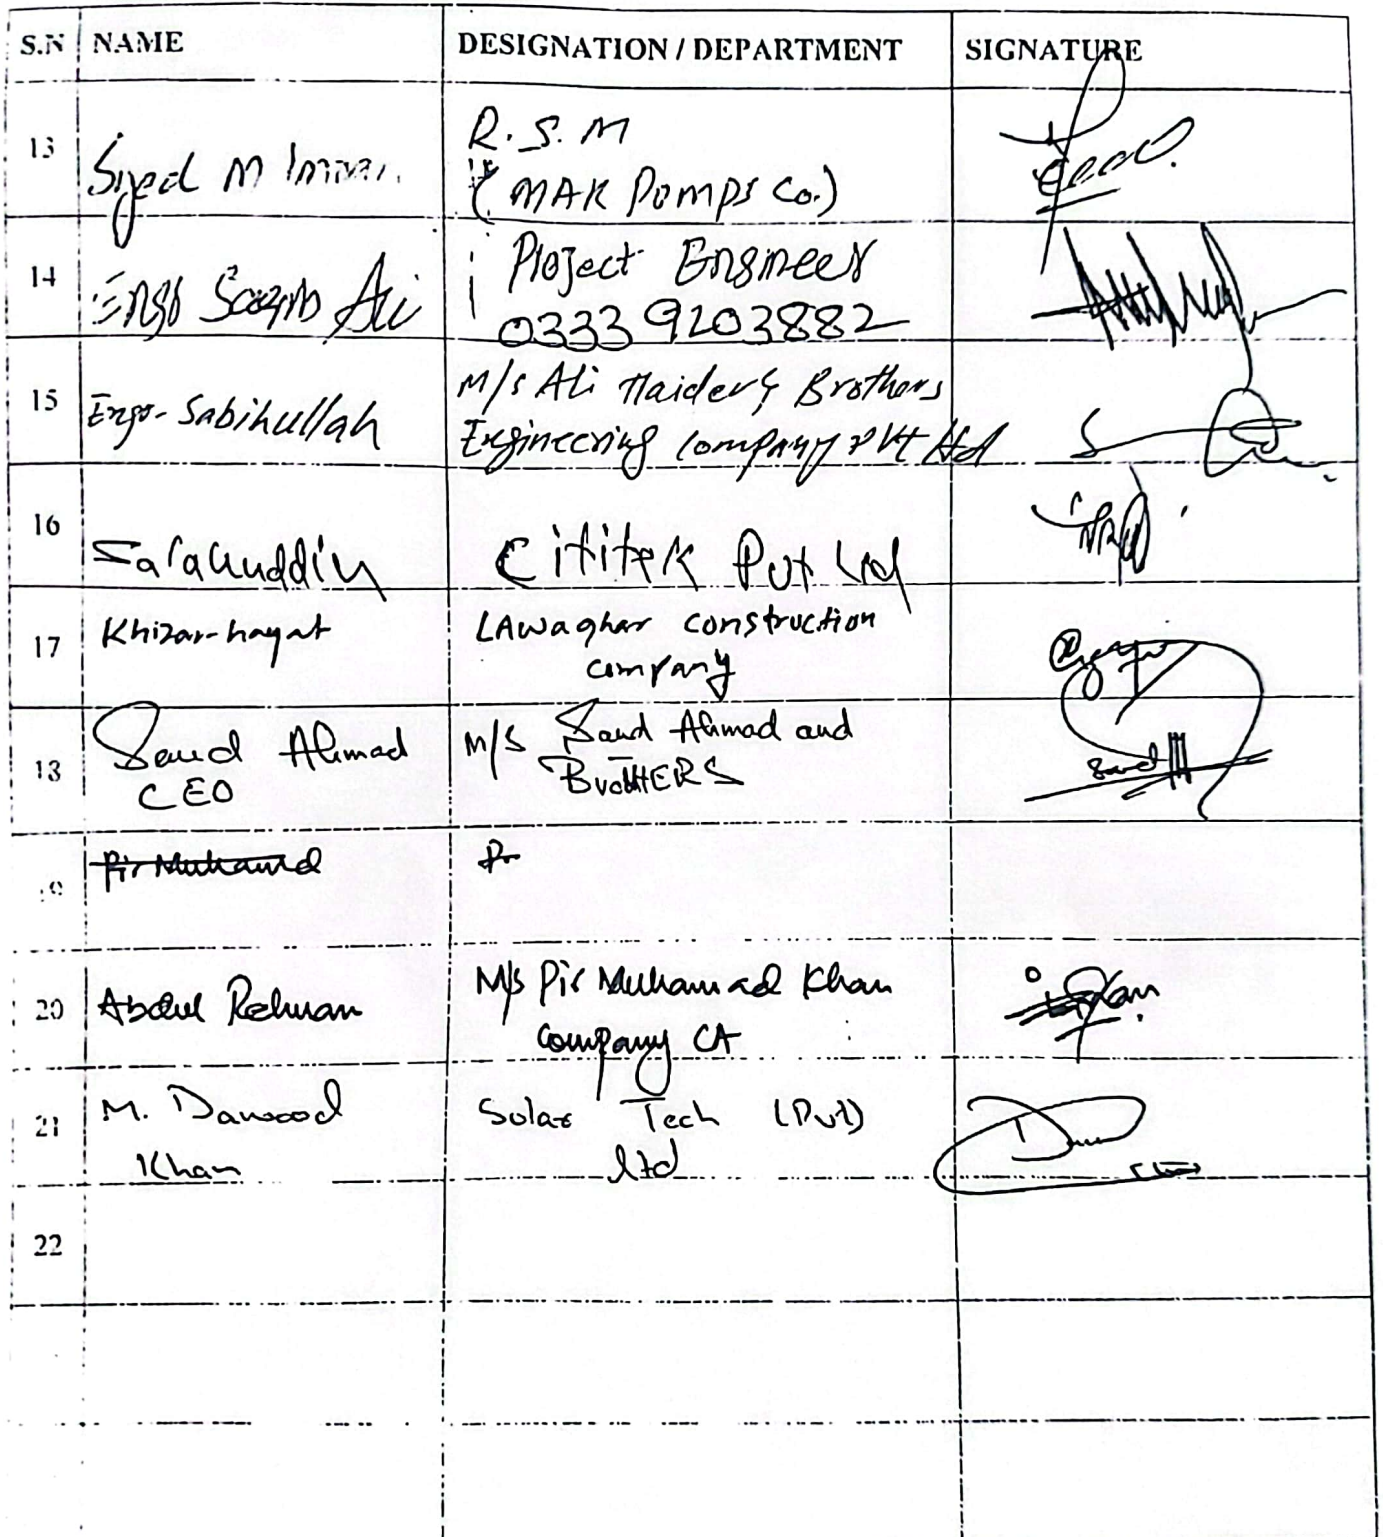 S.N NAME DESIGNATION / DEPARTMENT SIGNATURE
13 Syed M Imran R.S.M
(MAK Pumps Co.)
14 Engr Ali Project Engineer
0333 9203882
15 Engr. Sabihullah M/s Ali Haider & Brothers
Engineering Company Pvt Ltd
16 Salahuddin Cititek Pvt Ltd
17 Khizar-hayat LAwaghar construction
company
18 Saud Ahmad M/S Saud Ahmad and
CEO BroTHERS
Saud
19 Pir Muhamd Pr
20 Abdul Rehman M/s Pir Muhammad Khan
Company CA
21 M. Dawood Solar Tech (Pvt)
Khan ltd
22